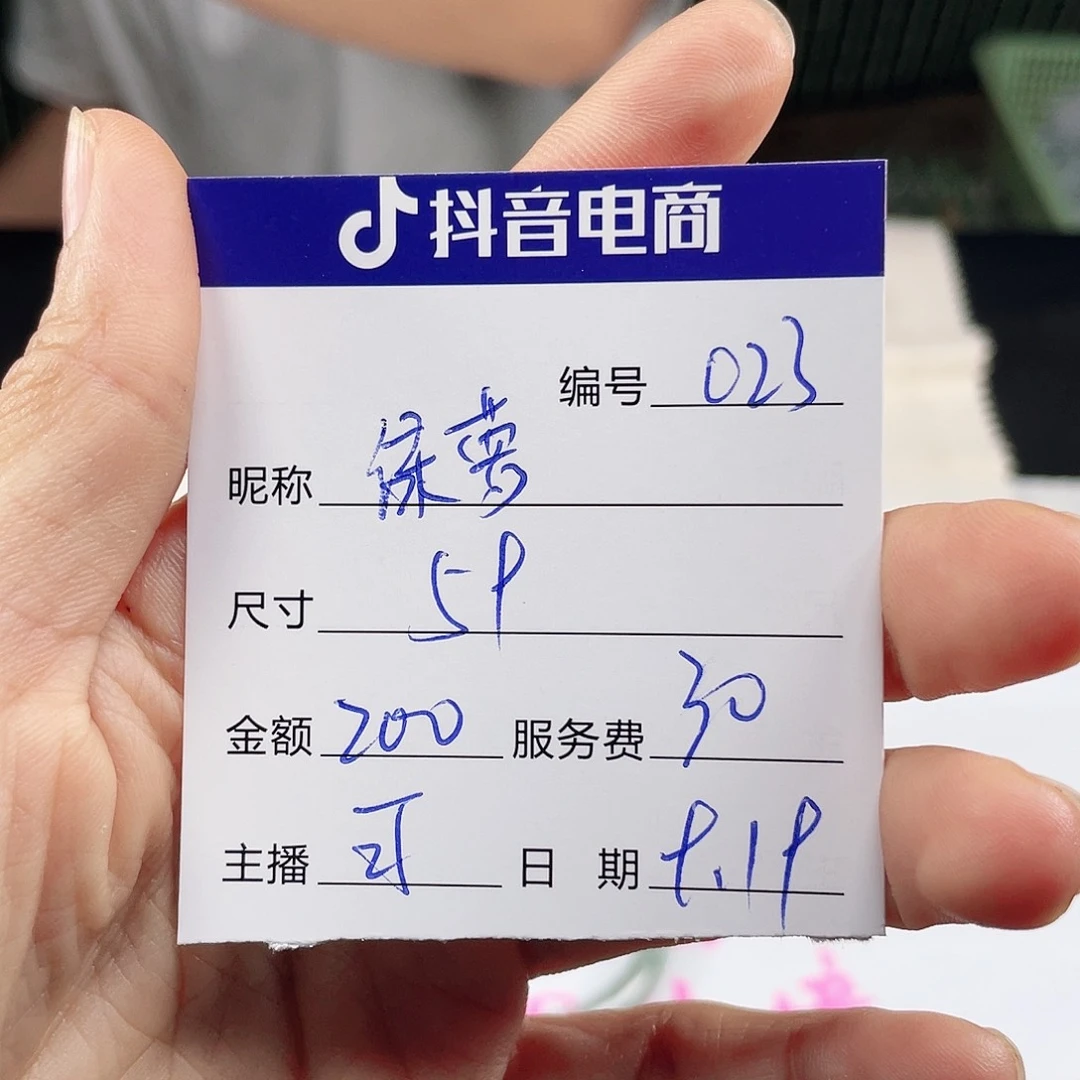 抖音电商
编号 023
昵称 依梦
尺寸 59
金额 200 服务费 30
主播 可 日期 9.19